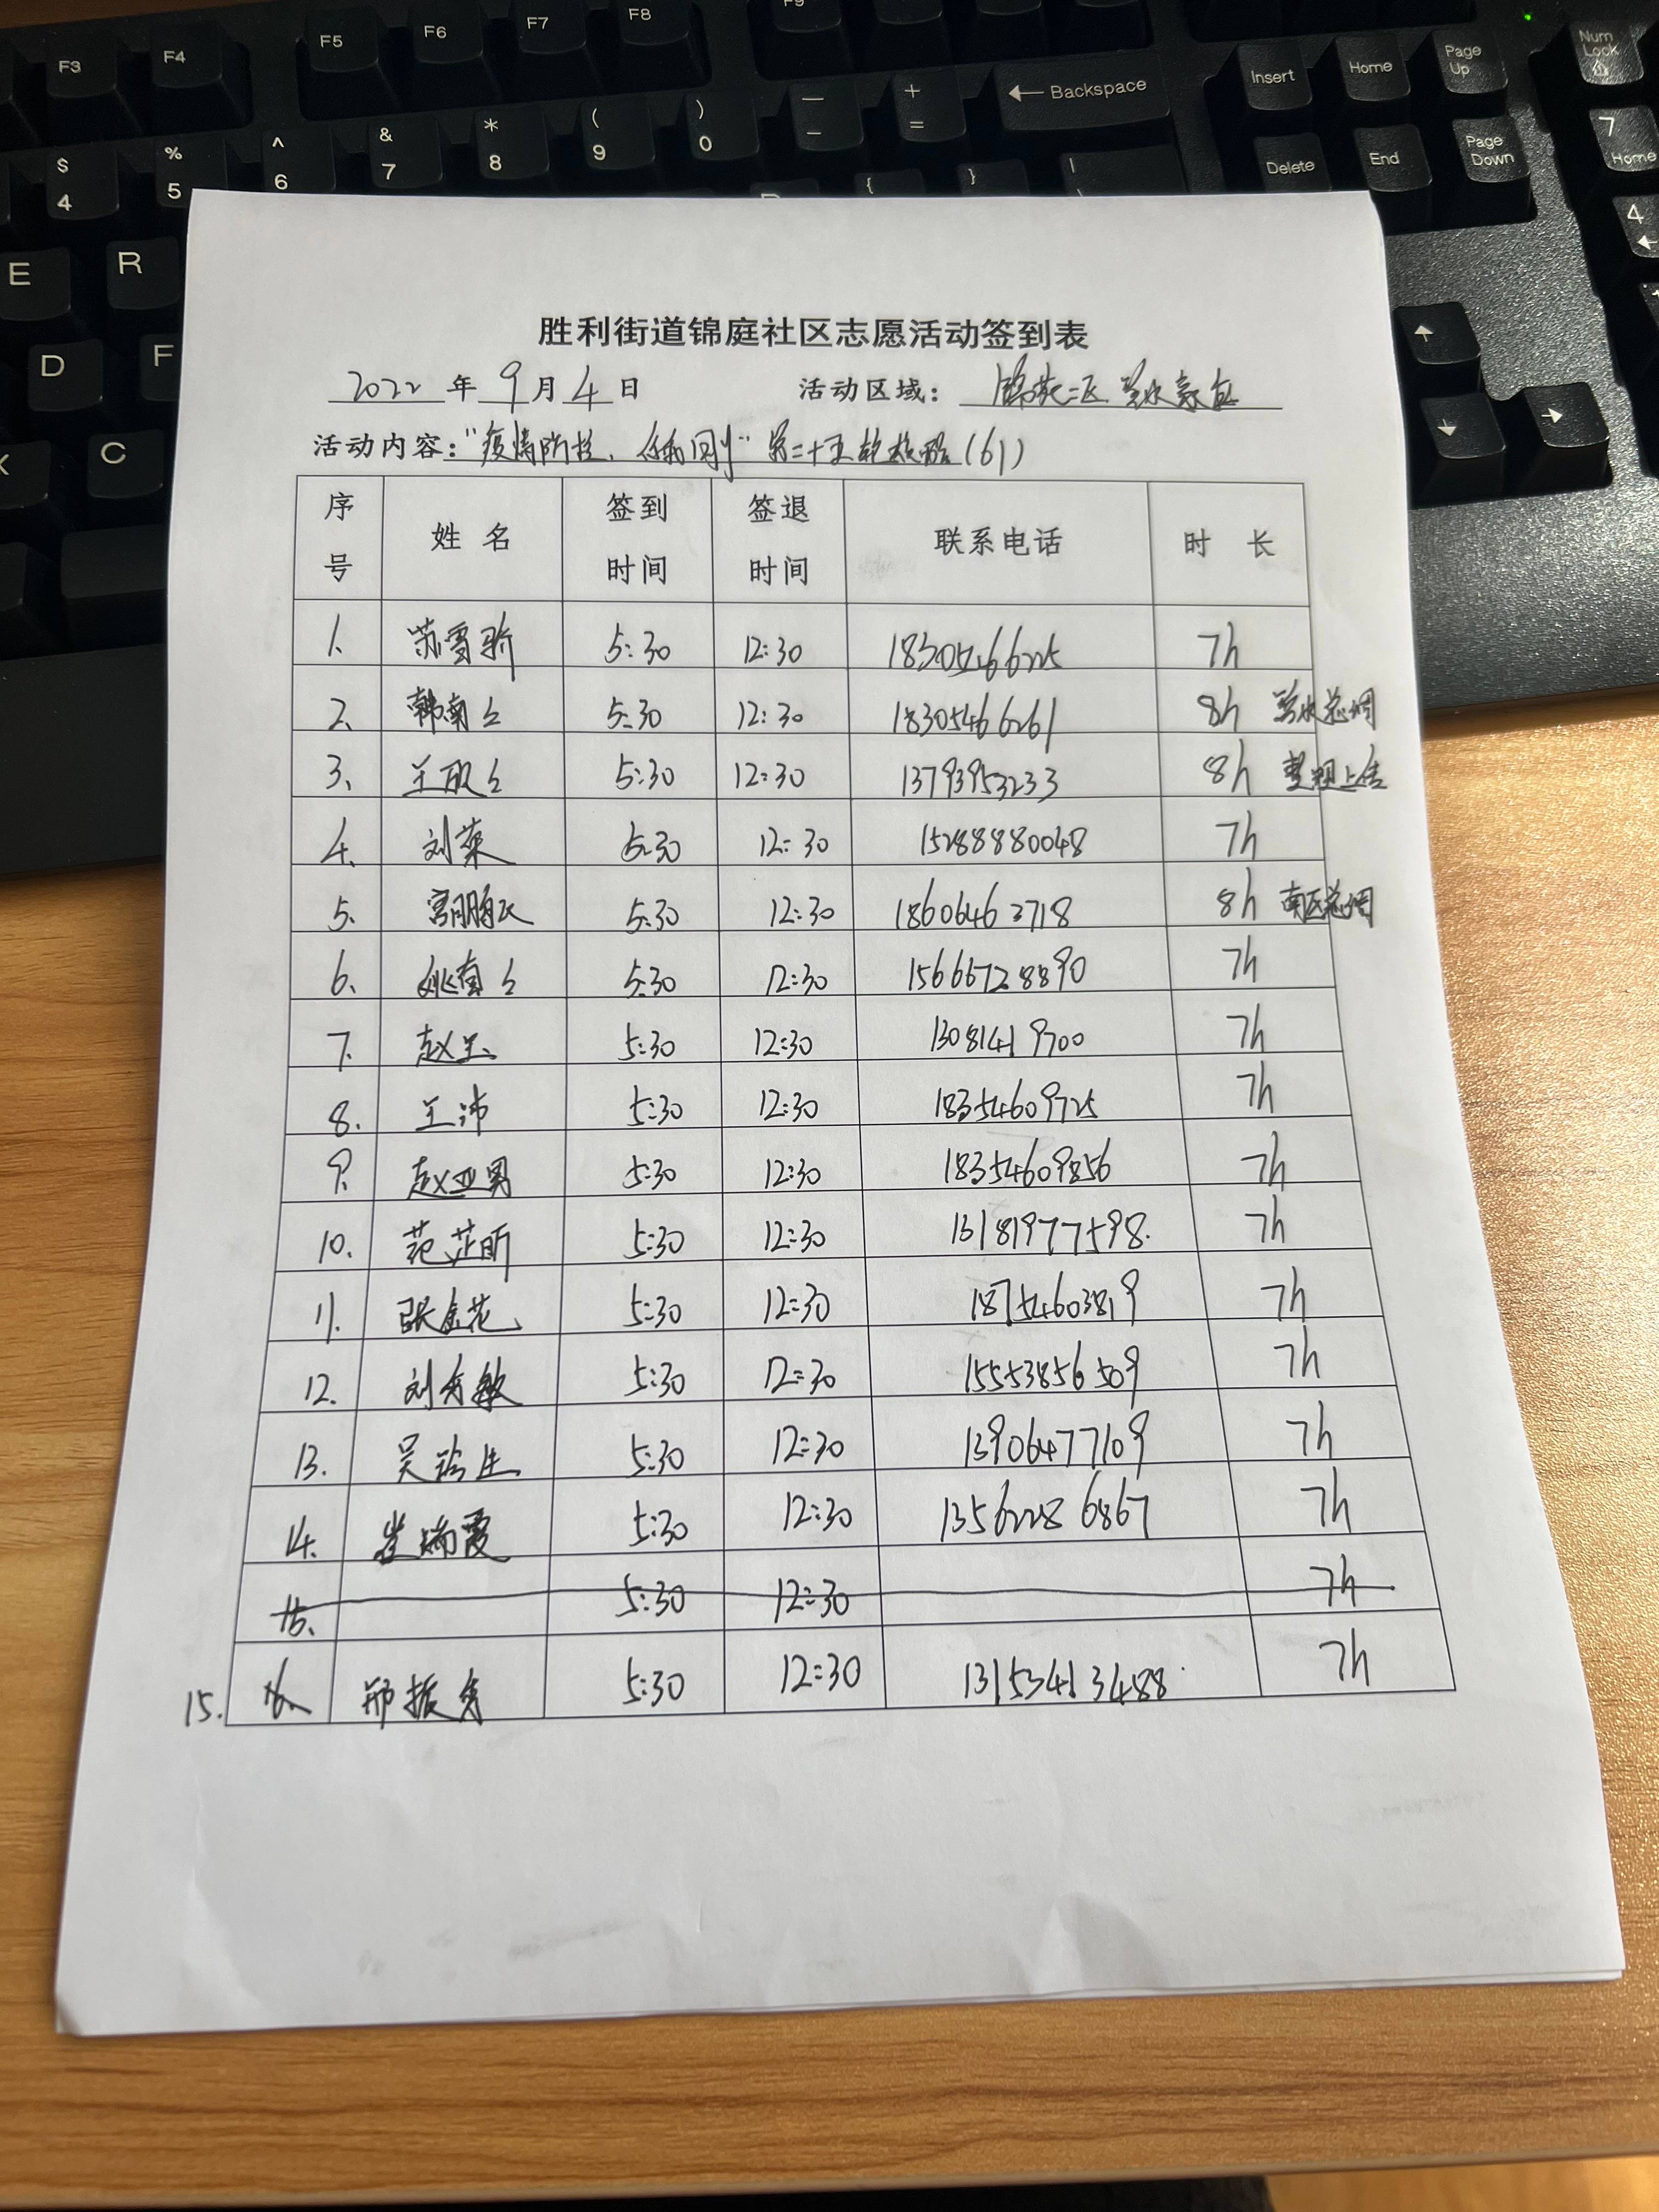 F3 F4 F5 F6 F7 F8 F9
$ 4 % 5 ^ 6 & 7 * 8 ( 9 ) 0 — - + = ← Backspace Insert Home Page Up Num Lock
E R { } | Delete End Page Down 7 Home
D F 4
C
胜利街道锦庭社区志愿活动签到表
2022 年 9 月 4 日 活动区域: 锦苑二区
活动内容: "疫情防控, 第二十五轮 (61)
序号 姓名 签到时间 签退时间 联系电话 时长
1. 苏雪骄 5:30 12:30 18305466225 7h
2. 韩南 5:30 12:30 18305466261 8h
3. 王 5:30 12:30 13793953233 8h
4. 刘荣 5:30 12:30 15288880048 7h
5. 宫 5:30 12:30 18606462718 8h 南区
6. 姚 5:30 12:30 15666728890 7h
7. 赵玉 5:30 12:30 13081419700 7h
8. 王沛 5:30 12:30 18354609725 7h
9. 赵亚男 5:30 12:30 18354609856 7h
10. 范芷昕 5:30 12:30 13181977598. 7h
11. 张金花 5:30 12:30 18754603819 7h
12. 刘秀敏 5:30 12:30 15553856509 7h
13. 吴 5:30 12:30 13906477109 7h
14. 崔瑞霞 5:30 12:30 13562286867 7h
15. 5:30 12:30 7h
15. 16. 邢振 5:30 12:30 13153413488 7h